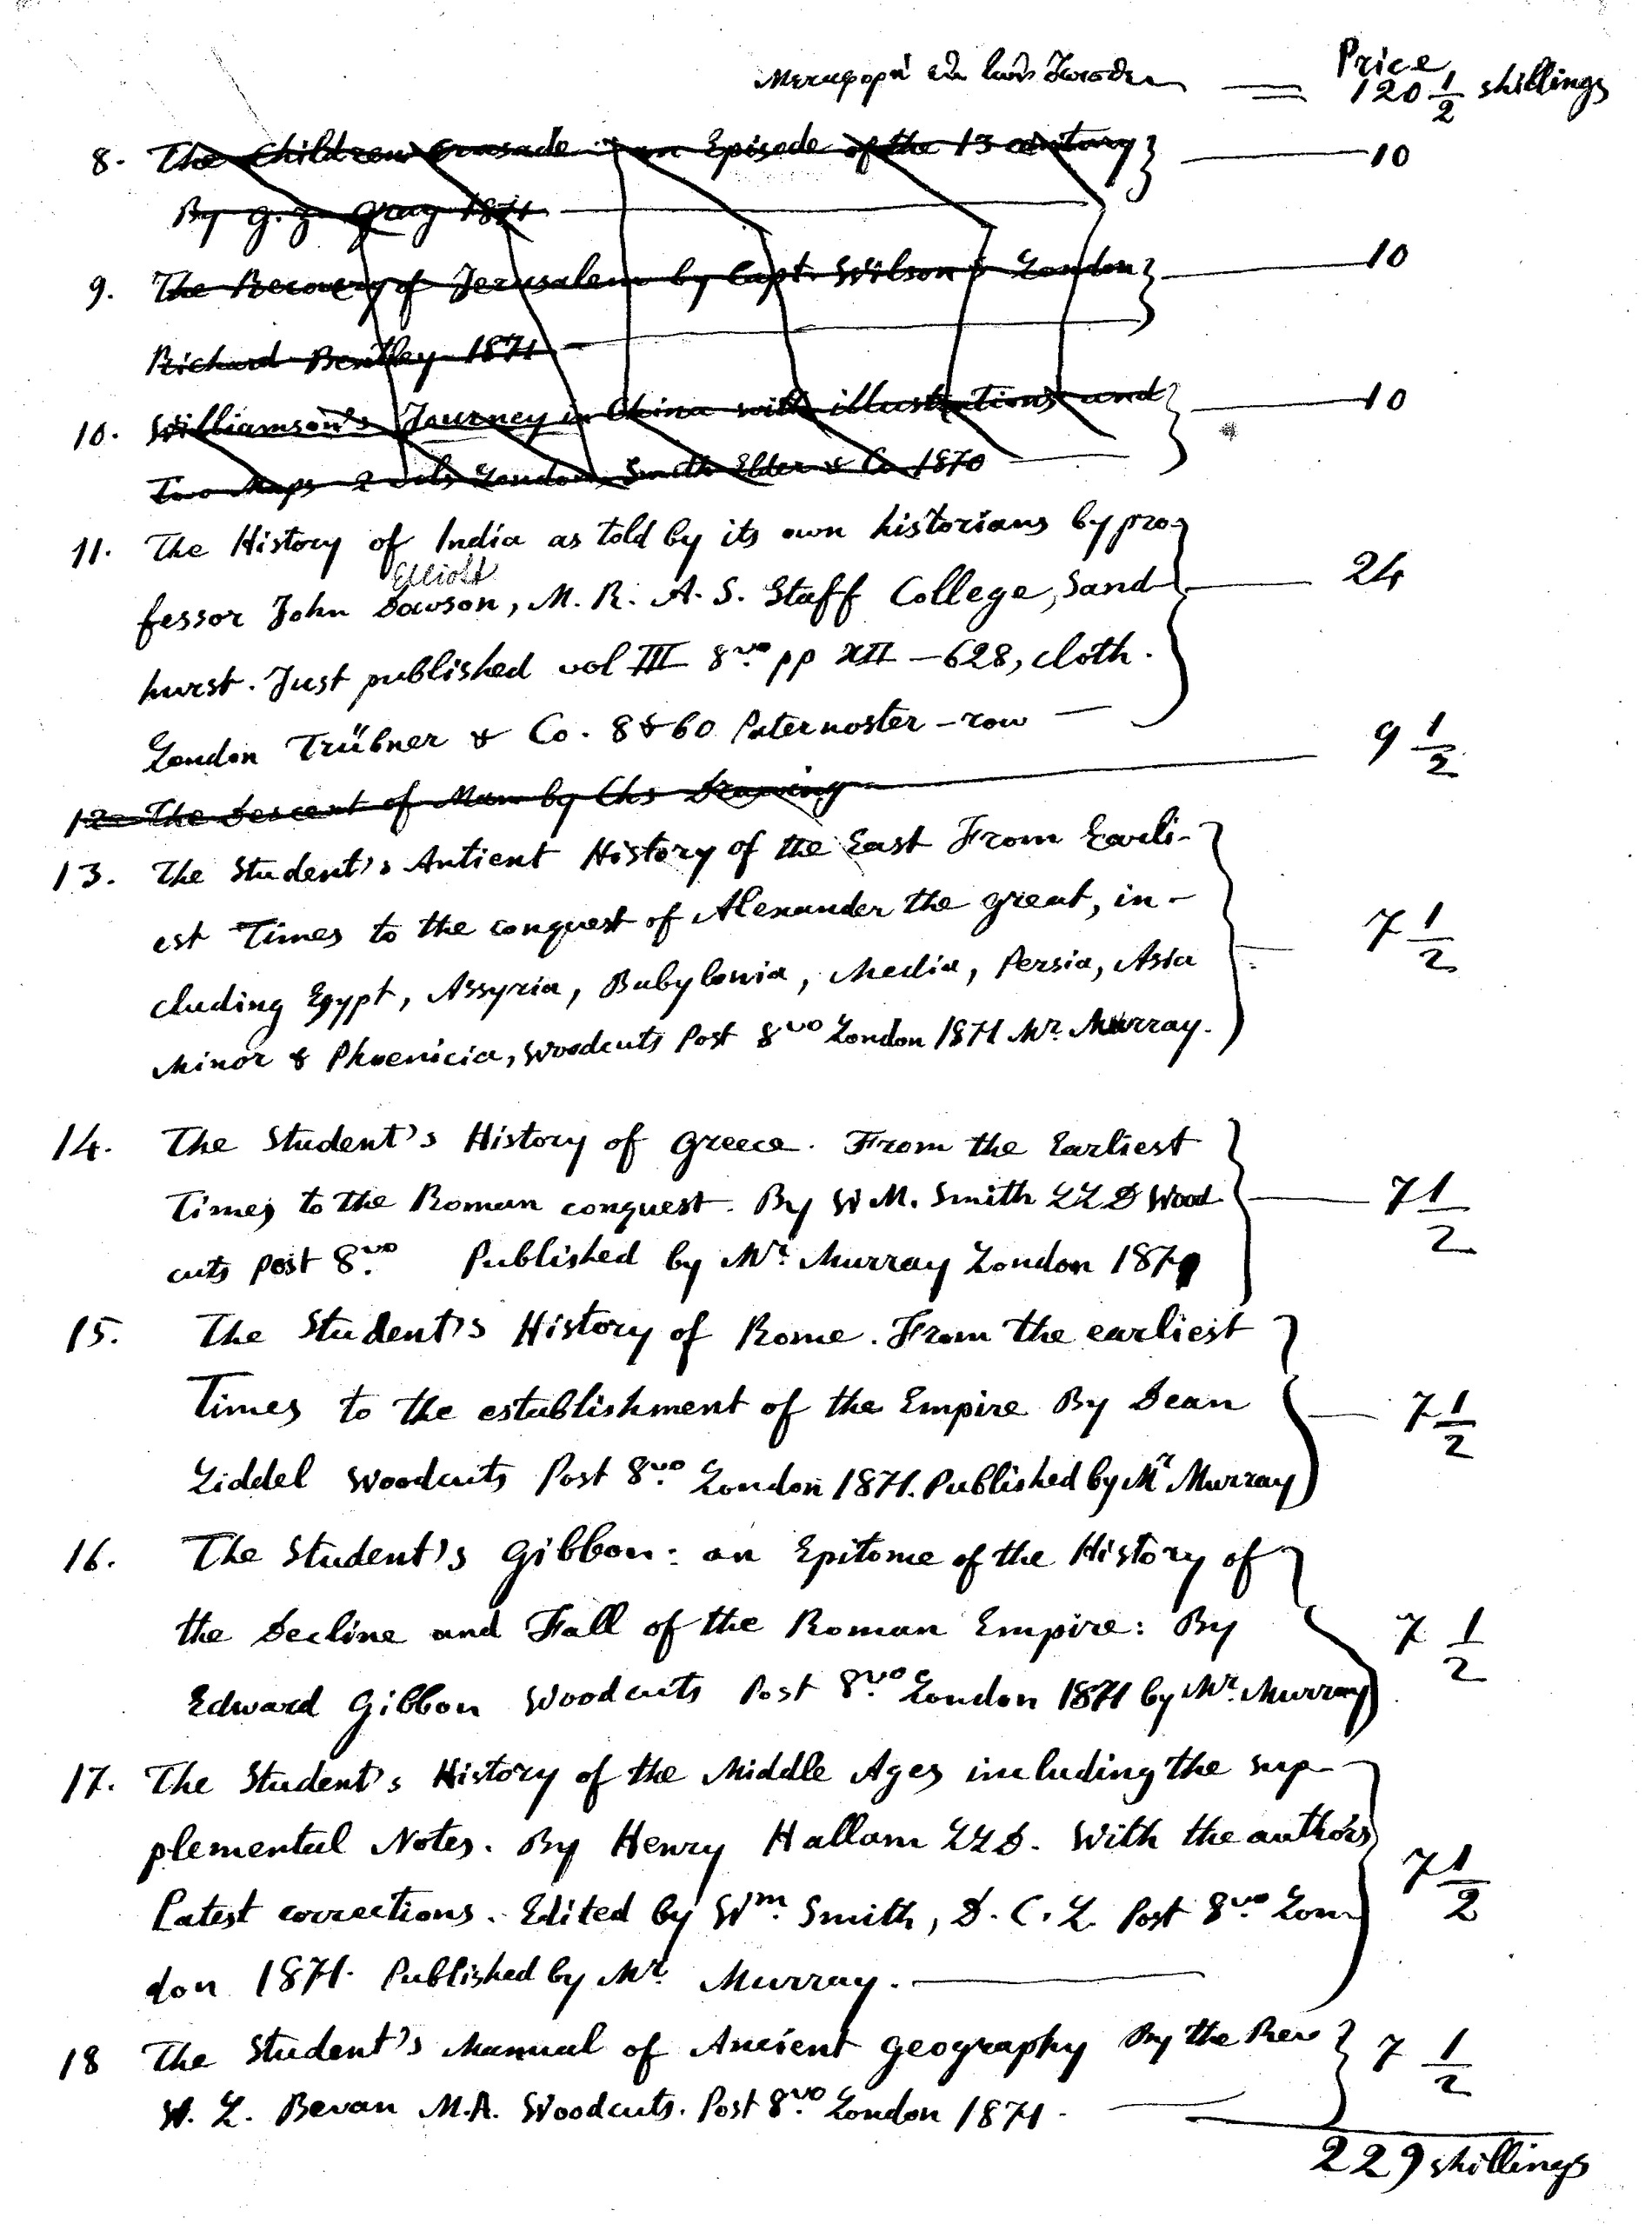 Μεταφορά εκ του όπισθεν = Price
120 1/2 shillings
8. The Children Crusade: an Episode of the 13 century 10
By G. Z. Gray 1871
9. The Recovery of Jerusalem by Capt. Wilson & London 10
Richard Bentley 1871
10. Williamson's Journey in China with illustrations and 10
Two Maps 2 vols London, Smith Elder & Co 1870
11. The History of India as told by its own historians by pro-
Elliott
fessor John Dowson, M. R. A. S. Staff College, Sand 24
hurst. Just published vol III 8vo pp XII – 628, cloth.
London Trübner & Co. 8 & 60 Paternoster-row
12 The descent of Man by Chs 9 1/2
13. The Student's Antient History of the East From Earli-
est Times to the conquest of Alexander the great, in- 7 1/2
cluding Egypt, Assyria, Babylonia, Media, Persia, Asia
Minor & Phoenicia, Woodcuts Post 8vo London 1871 Mr. Murray.
14. The Student's History of Greece. From the Earliest
Times to the Roman conquest. By W M. Smith LLD Wood 7 1/2
cuts Post 8vo Published by Mr. Murray London 1871
15. The Student's History of Rome. From the earliest
Times to the establishment of the Empire By Dean 7 1/2
Liddel Woodcuts Post 8vo London 1871. Published by Mr Murray
16. The Student's Gibbon: an Epitome of the History of
the Decline and Fall of the Roman Empire: By 7 1/2
Edward Gibbon Woodcuts Post 8vo London 1871 by Mr. Murray
17. The Student's History of the Middle Ages including the sup-
plemental Notes. By Henry Hallam LLD. With the author's 7 1/2
Latest corrections. Edited by Wm. Smith, D. C. L. Post 8vo Lon
don 1871. Published by Mr. Murray.
18 The Student's Manual of Ancient geography By the Rev 7 1/2
W. L. Bevan M.A. Woodcuts. Post 8vo London 1871.
229 shillings